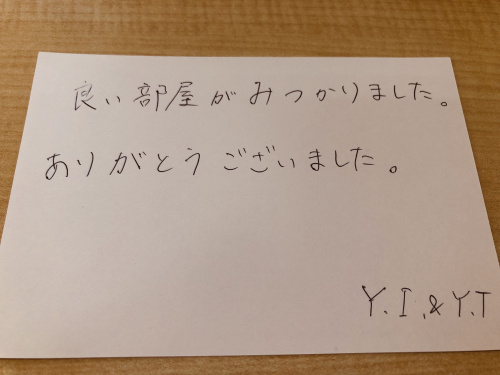 良い部屋がみつかりました。
ありがとうございました。
Y.I.&Y.T